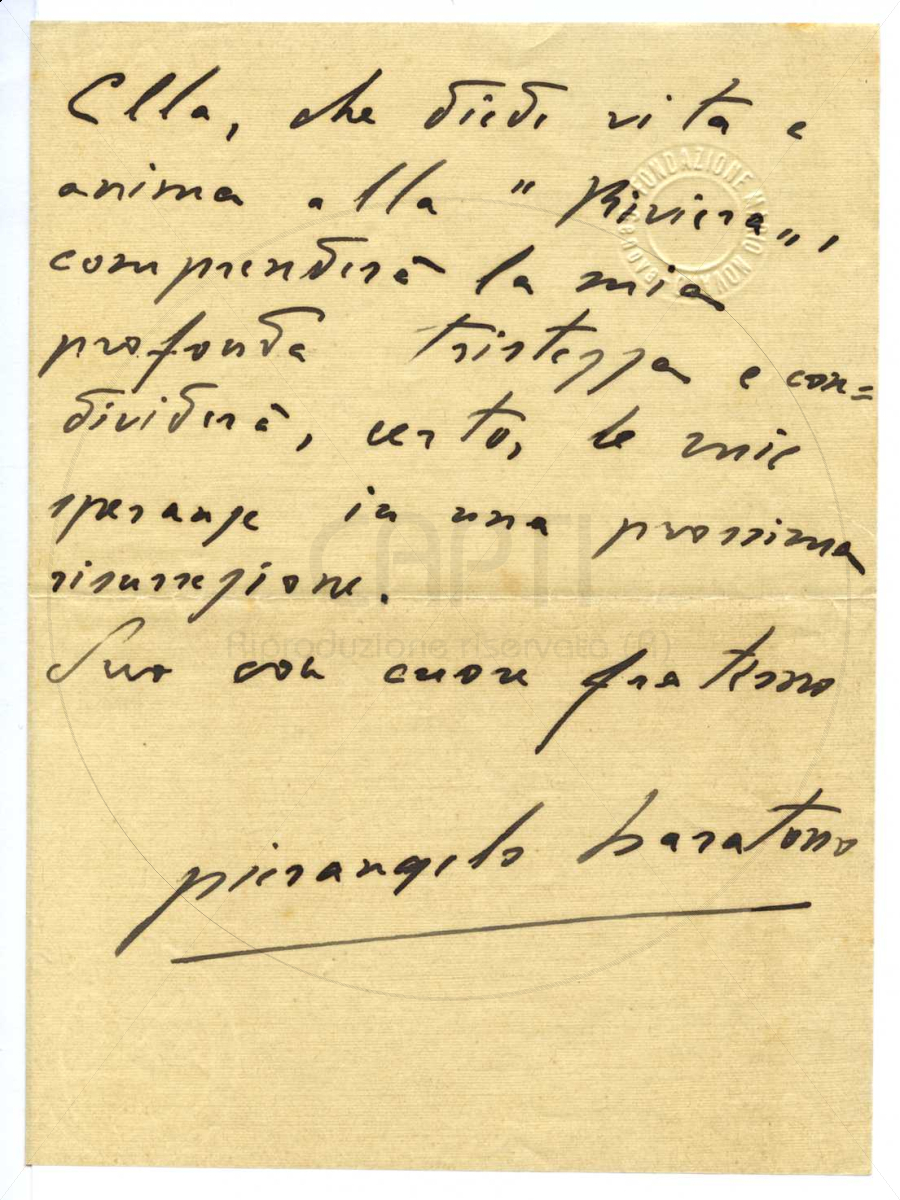 Ella, che diede vita e
anima alla " Riviera „,
comprenderà la mia
profonda tristezza e con=
dividerà, certo, le mie
speranze in una prossima
risurrezione.
Suo con cuore fraterno
pierangelo baratono
FONDAZIONE MARIO NOVARO
GENOVA
CAPTI
Riproduzione riservata (R)